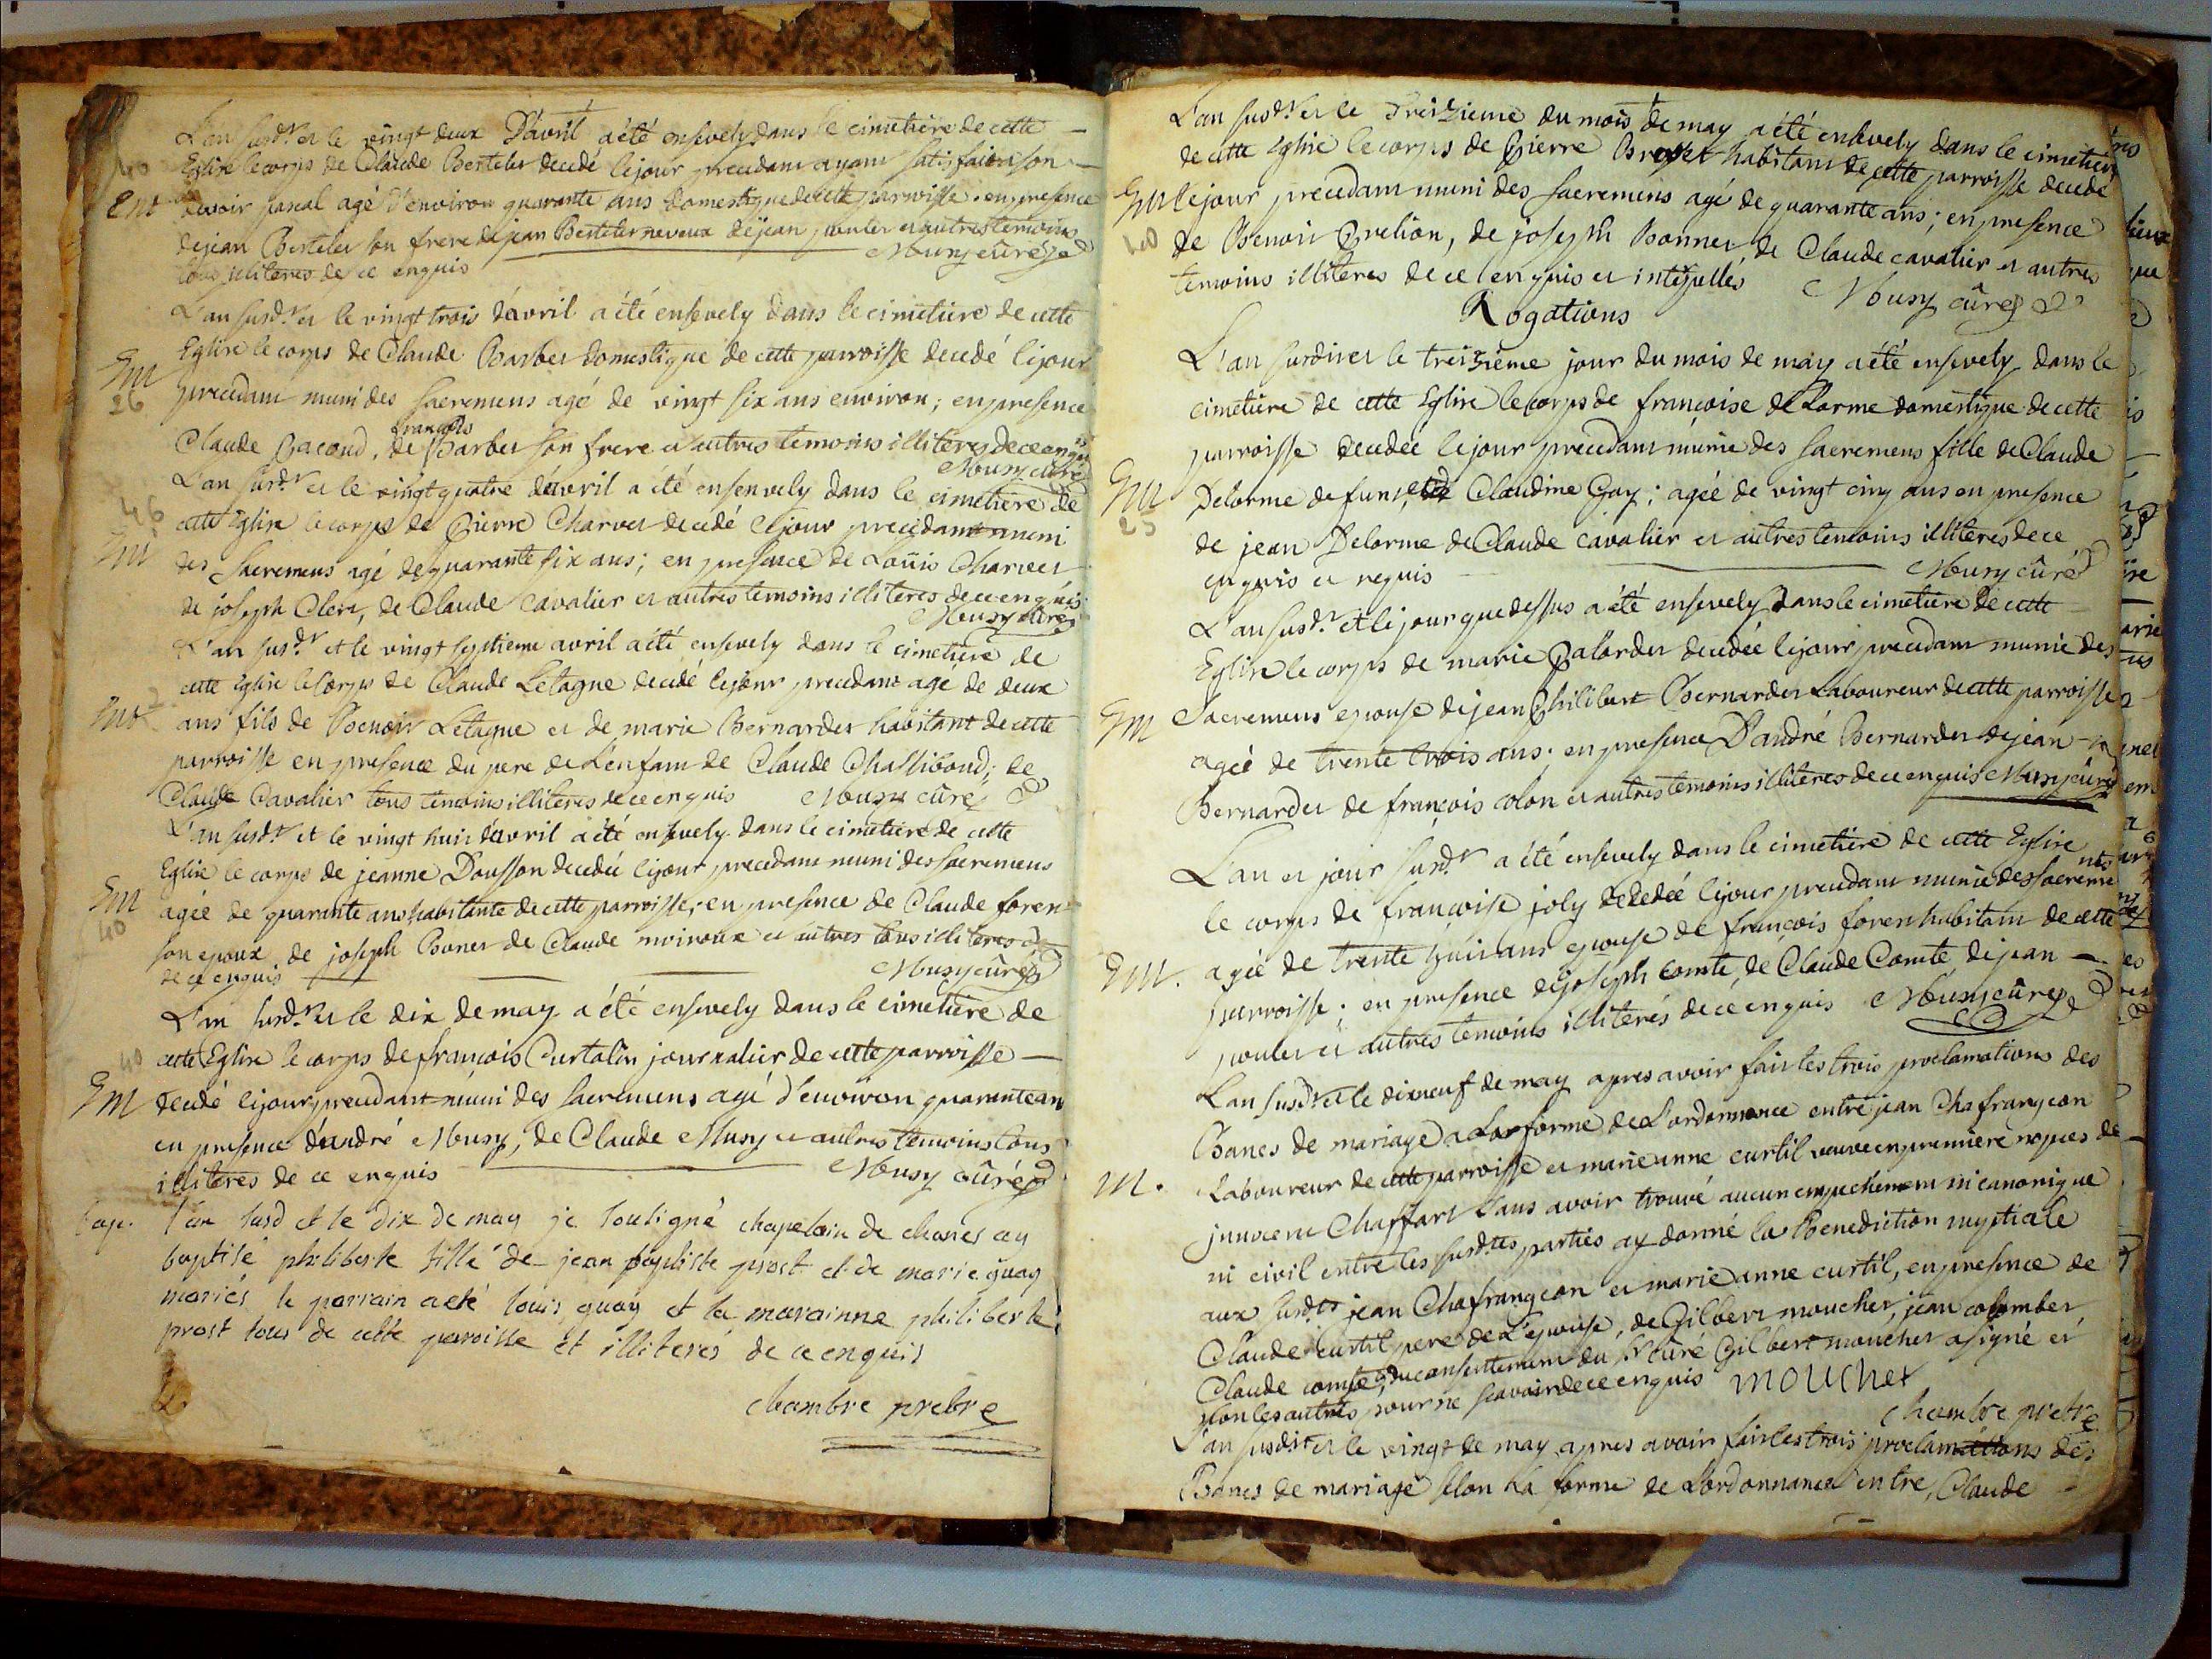 L'an susd.t et le vingt deux D'avril a été ensevely dans le cimetiere de cette
40
Eglise le corps de Claude Bertelet decedé le jour precedant ayant satisfait a son
Ent devoir pascal agé d'environ quarante ans domestique de cette parroisse. en presence
de jean Bertelet son frere de jean Bertelet neveux de jean poulet et autres temoins
tous illiteres de ce enquis Musy curé
L'an susd.t et le vingt trois d'avril a été ensevely dans le cimetiere de cette
Eglise le corps de Claude Barbet domestique de cette parroisse decedé le jour
Ent
26
precedant muni des sacremens agé de vingt six ans environ; en presence
françois
Claude Pacoud, de Barbet son frere et autres temoins illiteres de ce enquis
Musy curé
L'an susd.t et le vingt quatre d'avril a été ensenvely dans le cimetiere de
46
cette Eglise le corps de Pierre Charvet decedé le jour precedant muni
Ent
des sacremens agé de quarante six ans; en presence de Loüis Charvet
de joseph Clerc, de Claude Cavalier et autres temoins illiteres de ce enquis
Musy curé
L'an susd.t et le vingt septieme avril a été ensevely dans le cimetiere de
cette Eglise le corps de Claude Letagne decedé le jour precedant age de deux
Ent 2
ans fils de Benoit Letagne et de marie Bernardet habitant de cette
parroisse en presence du pere de L'enfant de Claude Chassiboud; de
Claude Cavalier tous temoins illiteres de ce enquis Musy curé
L'an susd.t et le vingt huit d'avril a été ensevely dans le cimetiere de cette
Eglise le corps de jeanne Dousson decedée le jour precedant muni des sacremens
Ent
40
agée de quarante ans habitante de cette parroisse; en presence de Claude foren
son epoux de joseph Bonet de Claude moiroux et autres tous illiteres
de ce enquis Musy curé
L'an susd.t et le dix de may a été ensevely dans le cimetiere de
40
cette Eglise le corps de francois Curtalin journalier de cette parroisse
Ent decedé le jour precedant muni des sacremens agé d'environ quarante an
en presence d'andré Musy, de Claude Musy et autres temoins tous
illiteres de ce enquis Musy curé
bap. l'an susd et le dix de may je sousigné chapelain de chanes ay
baptisé philiberte fille de jean baptiste prost et de marie guay
mariés le parrain a eté louis guay et la marainne philiberte
prost tous de cette paroisse et illiterés de ce enquis
chambre pretre
L'an susd.t et le treizieme du mois de may a été ensevely dans le cimetiere
de cette Eglise le corps de Pierre habitant de cette parroisse decedé
Ent le jour precedant muni des sacremens agé de quarante ans; en presence
40
de Benoit Prelion, de joseph Bonnet de Claude cavalier et autres
temoins illiteres de ce enquis et Musy curé
Rogations
L'an susdit et le treizième jour du mois de may a été ensevely dans le
cimetiere de cette Eglise le corps de françoise de Lorme domestique de cette
parroisse decedée le jour precedant munie des sacremens fille de Claude
Ent
25
Delorme defunt, et de Claudine Gay; agée de vingt cinq ans en presence
de jean Delorme de Claude cavalier et autres temoins illiteres de ce
enquis et requis Musy curé
L'an susd.t et le jour que dessus a été ensevely dans le cimetiere de cette
Eglise le corps de marie Palordet decedée le jour precedant munie des
Ent
Sacremens epouse de jean Philibert Bernardet Laboureur de cette parroisse
agée de trente trois ans; en presence D'andré Bernardet de jean
Bernardet de françois colon et autres temoins illiteres de ce enquis Musy curé
L'an et jour susd.t a été ensevely dans le cimetiere de cette Eglise
le corps de françoise joly decedée le jour precedant munie des sacrements
Ent. agée de trente huit ans epouse de francois foren habitant de cette
parroisse; en presence de joseph comte, de Claude Comte de jean
poulet et autres temoins illiterés de ce enquis Musy curé
L'an susdit et le dixneuf de may apres avoir fait les trois proclamations des
Bancs de mariage a La forme de L'ordonnance entre jean Chafrangeon
m. Laboureur de cette parroisse et marie anne curtil veuve en premiere nopces de
innocent Chaffart sans avoir trouvé aucun empechement ni canonique
ni civil entre les susd.tes parties ay donné la Benediction nuptiale
aux susd.ts jean Chafrangeon et marie anne curtil, en presence de
Claude curtil pere de L'epouse, de Gilbert mouchet, jean colomber
Claude comte, du consentement du sr curé Gilbert mouchet a signé et
non les autres pour ne scavoir de ce enquis mouchet
chambre pretre
L'an susdit et le vingt de may apres avoir fait les trois proclamations des
Bancs de mariage selon La forme de L'ordonnance entre, Claude